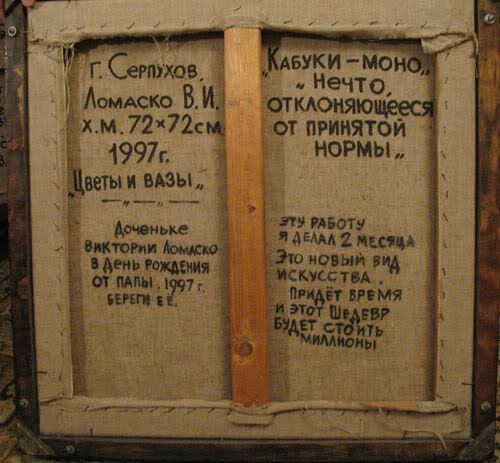 г. Серпухов,
Ломаско В.И.
х.м. 72×72см
1997г.
„Цветы и вазы„
Доченьке
Виктории Ломаско
в день рождения
от папы. 1997г.
БЕРЕГИ ЕЁ.
„Кабуки – моно„
„Нечто,
отклоняющееся
от принятой
нормы„
эту работу
я делал 2 месяца
Это новый вид
искусства.
Придёт время
и этот Шедевр
будет стоить
миллионы